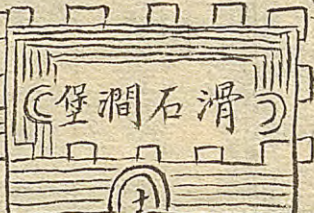 滑石澗堡
土